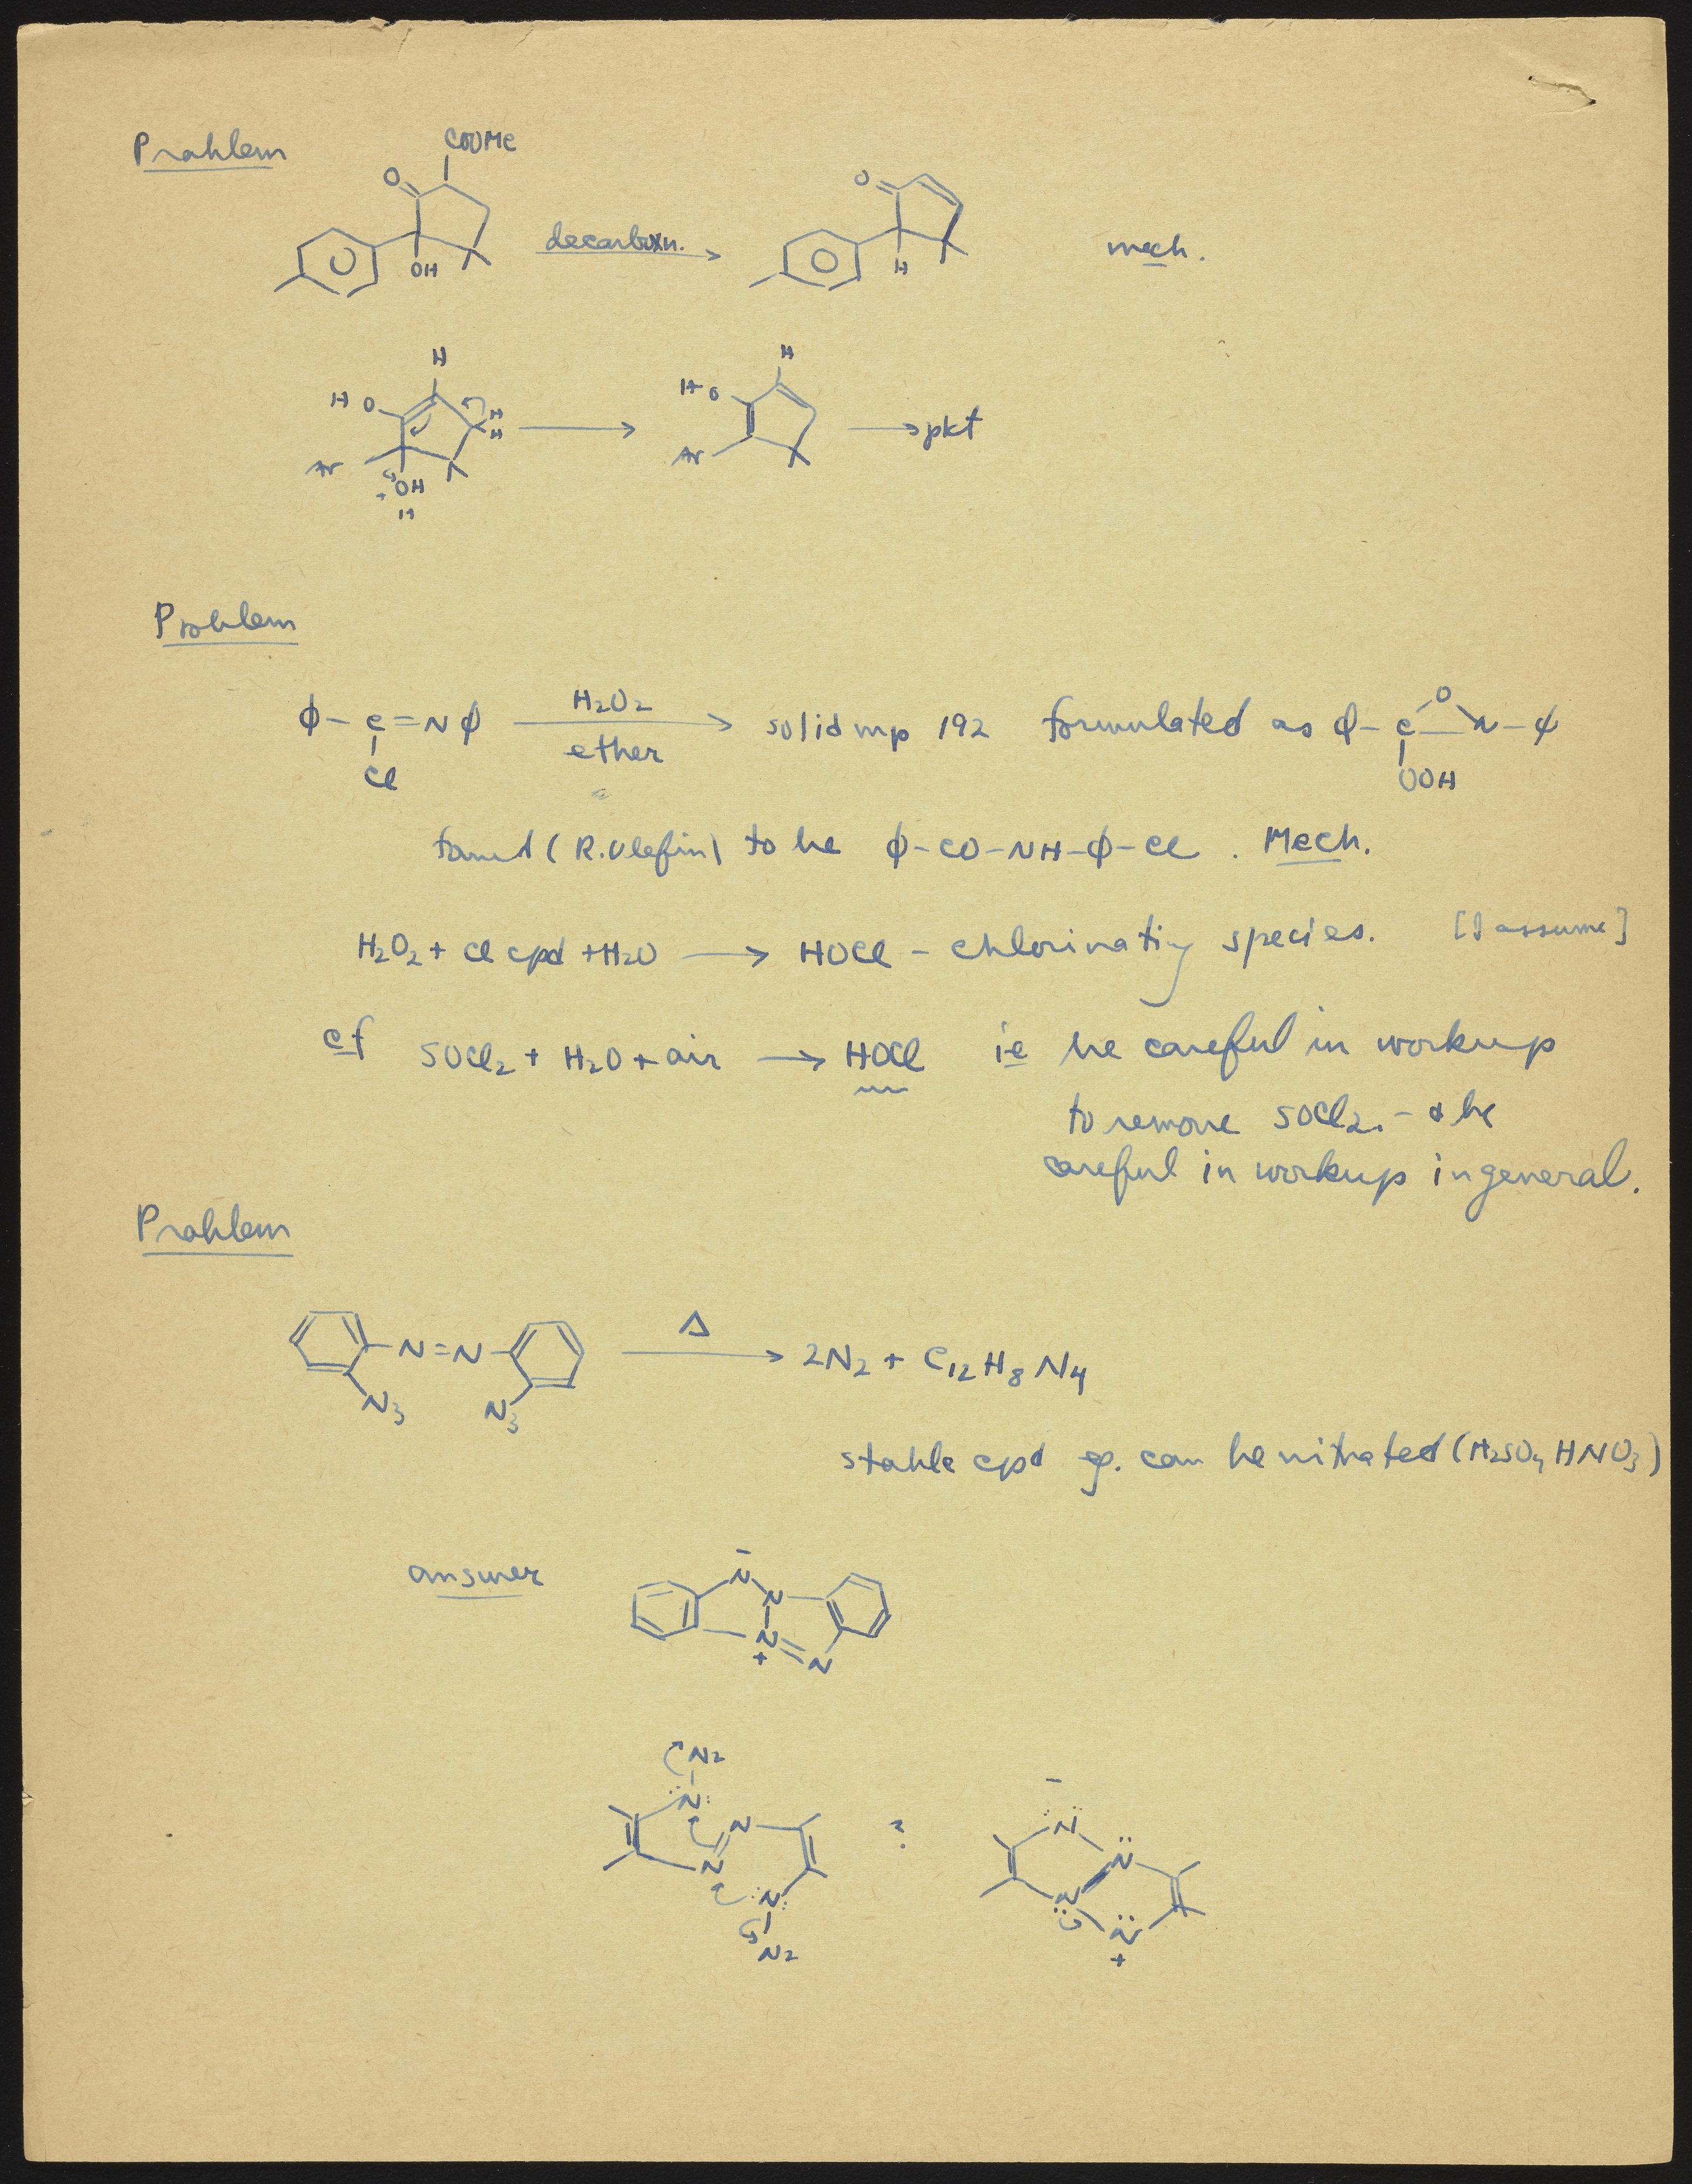 Problem
COOMe
O
OH
decarboxn.
O
H
mech.
H
H O
H
H
Ar
OH
+
H
H
H O
Ar
pkt
Problem
ϕ-C=Nϕ
Cl
H2O2
ether
solid mp 192 formulated as ϕ-C-N-ϕ
O
OOH
found (R. Olefin) to be ϕ-CO-NH-ϕ-Cl. Mech.
H2O2 + Cl cpd + H2O → HOCl - chlorinating species. [I assume]
cf SOCl2 + H2O + air → HOCl ie be careful in workup
to remove SOCl2. - & be
careful in workup in general.
Problem
N=N
N3
N3
Δ
2N2 + C12H8N4
stable cpd eg. can be nitrated (H2SO4 HNO3)
answer
-
N
N
N
+
N
N2
N
N
N
N
N2
?
-
N
N
N
N
+